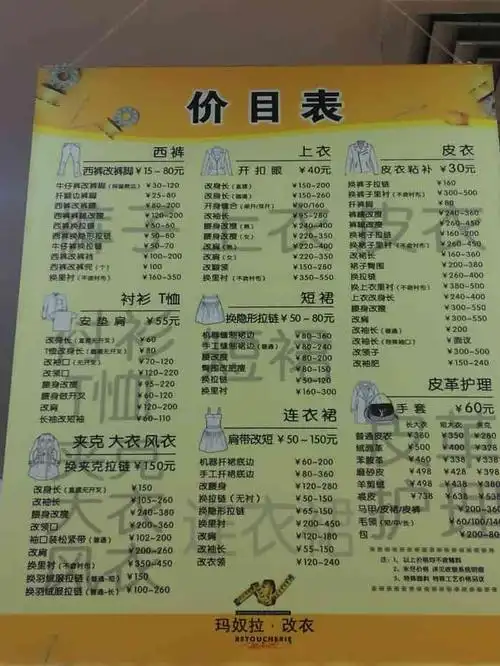 价目表
西裤
西裤改裤脚 ¥15-80元
¥30-120
扦翻边裤脚 ¥25-80
西裤改裤腰 ¥80-200
¥120-200
西裤换拉链 ¥50-60
西裤换隐形拉链 ¥50-80
牛仔裤换拉链 ¥50-70
西裤改裤裆 ¥100-200
¥100
换里衬(不含衬布) ¥160-350
衬衫 T恤
安垫肩 ¥55元
改身长(直摆无开叉) ¥60
T恤改身长(直摆无开叉) ¥80
改袖长(无开叉) ¥70-120
改领口 ¥120-220
腰身改瘦 ¥95-220
腰身做开叉 ¥60-120
改肩 ¥120-200
长袖改短袖 ¥60-110
夹克 大衣 风衣
换夹克拉链 ¥150元
改身长(直摆无开叉) ¥150
改袖长 ¥105-260
腰身改瘦 ¥240-380
改领口 ¥200-360
袖口装松紧带(普通) ¥102-200
改肩 ¥200-260
换里衬(不含衬布) ¥350-450
换羽绒服拉链(普通-短) ¥150
换羽绒服拉链(普通-长) ¥100-260
上衣
开扣眼 ¥40元
改身长(直摆) ¥150-200
改身长 ¥150-260
开身缝合 ¥90/160
改袖长 ¥95-280
腰身改瘦(男) ¥220-400
腰身改瘦(女) ¥220-350
改肩(男) ¥220-400
改肩(女) ¥220-350
改翻领 ¥150-260
换里衬(不含衬布) ¥350-550
短裙
换隐形拉链 ¥50-80元
机器缝制裙边 ¥80-360
手工缝制裙边(普通) ¥80-240
腰改瘦 ¥80-200
臀围改肥瘦 ¥80-150
换拉链 ¥50-120
换里衬 ¥160-300
连衣裙
肩带改短 ¥50-150元
机器扦裙底边 ¥60-200
手工扦裙底边 ¥80-360
改腰身 ¥120-280
换拉链(无衬) ¥50-150
换隐形拉链 ¥65-150
换里衬 ¥200-450
改肩 ¥120-180
改袖长 ¥55-150
改衣长 ¥120-240
皮衣
皮衣粘补 ¥30元
换裤子拉链 ¥160
换裤子里衬(不含衬布) ¥300-500
扦裤脚 ¥80
裤腰改瘦 ¥240-360
¥260-400
换裙子拉链 ¥160-200
换裙子里衬(不含衬布) ¥260-450
改裙长 ¥160-360
裙子臀围 ¥200-260
换拉链 ¥260-450
换上衣里衬(不含衬布) ¥385-540
上衣改身长 ¥240-300
腰身改瘦 ¥300-550
改肩 ¥260-300
改袖长(普通) ¥200
改袖长(特殊袖口) ¥面议
改领子 ¥300-500
改袖肥 ¥150-240
皮革护理
手套 ¥60元
长大衣 短大衣
普通皮衣 ¥380 ¥350 ¥280
绒面革 ¥500 ¥400 ¥380
苯胺革 ¥460 ¥338 ¥338
磨砂皮 ¥498 ¥428 ¥398
羊剪绒 ¥498 ¥438 ¥385
裘皮 ¥738 ¥638
马甲/皮裙/皮裤 ¥200-360
毛领(短/中/长) ¥60/100/140
包 ¥200-800
注:1、以上价格均不含辅料
2、未尽价格 详见收银系统明细
3、特殊面料 特殊工艺价格另议
玛奴拉·改衣
RETOUCHERIE